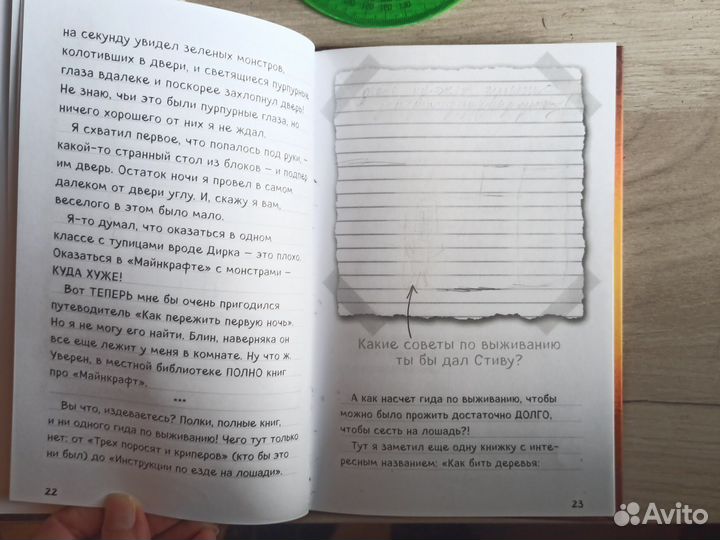 на секунду увидел зеленых монстров,
колотивших в двери, и светящиеся пурпурные
глаза вдалеке и поскорее захлопнул дверь!
Не знаю, чьи это были пурпурные глаза, но
ничего хорошего от них я не ждал.
Я схватил первое, что попалось под руки, –
какой-то странный стол из блоков – и подпер
им дверь. Остаток ночи я провел в самом
далеком от двери углу. И, скажу я вам,
веселого в этом было мало.
Я-то думал, что оказаться в одном
классе с тупицами вроде Дирка – это плохо.
Оказаться в «Майнкрафте» с монстрами –
КУДА ХУЖЕ!
Вот ТЕПЕРЬ мне бы очень пригодился
путеводитель «Как пережить первую ночь».
Но я не могу его найти. Блин, наверняка он
все еще лежит у меня в комнате. Ну что ж.
Уверен, в местной библиотеке ПОЛНО книг
про «Майнкрафт».
***
Вы что, издеваетесь? Полки, полные книг,
и ни одного гида по выживанию! Чего тут только
нет: от «Трех поросят и криперов» (кто бы это
ни был) до «Инструкции по езде на лошади».
22
Какие советы по выживанию
ты бы дал Стиву?
А как насчет гида по выживанию, чтобы
можно было прожить достаточно ДОЛГО,
чтобы сесть на лошадь?!
Тут я заметил еще одну книжку с инте-
ресным названием: «Как бить деревья:
23
Avito